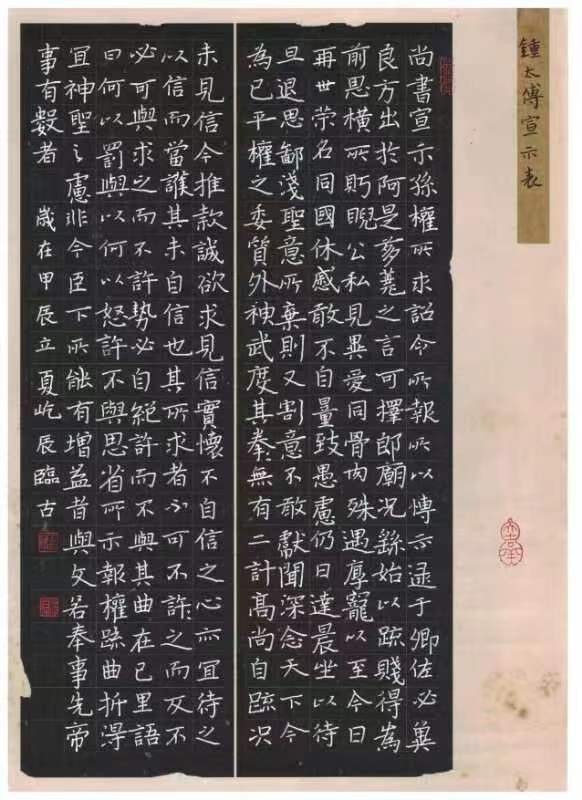 鍾太傅宣示表
尚書宣示孫權所求詔令所報所以博示逮于卿佐必冀
良方出於阿是芻蕘之言可擇郎廟況繇始以疏賤得為
前恩橫所眄睨公私見異愛同骨肉殊遇厚寵以至今日
再世榮名同國休慼敢不自量致愚慮仍日達晨坐以待
旦退思鄙淺聖意所棄則又割意不敢獻聞深念天下今
為已平權之委質外神武度其拳無有二計高尚自疏況
未見信今推款誠欲求見信實懷不自信之心亦宜待之
以信而當護其未自信也其所求者不可不許之而反不
必可與求之而不許勢必自絕許而不與其曲在己里語
曰何以罰與以何以怒許不與思省所示報權疏曲折得
宜神聖之慮非今臣下所能有增益昔與文若奉事先帝
事有數者 歲在甲辰立夏屹辰臨古